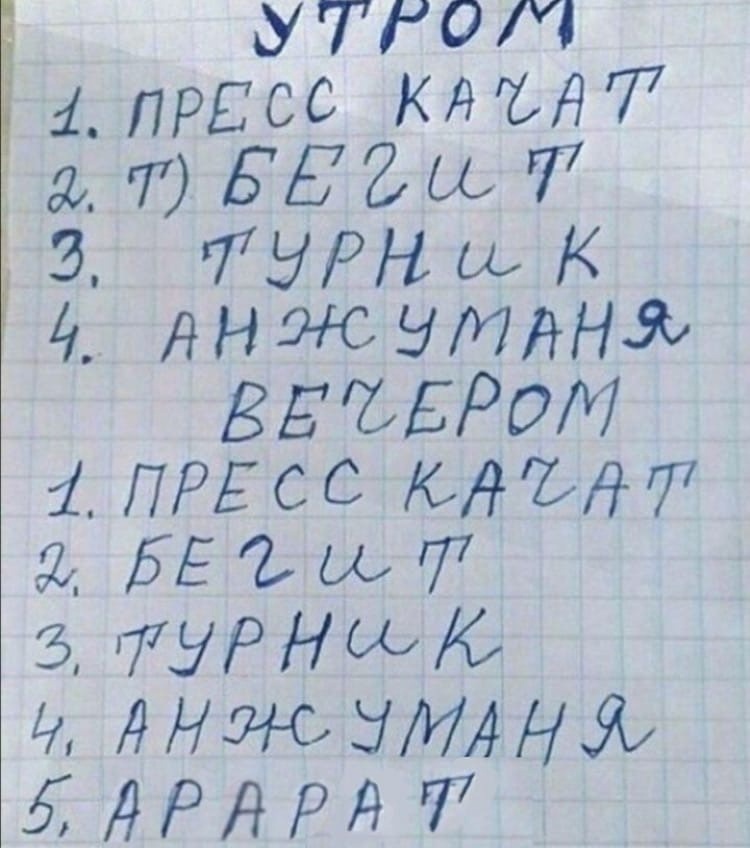 УТРОМ
1. ПРЕСС КАЧАТ
2. Т) БЕГИТ
3. ТУРНИК
4. АНЖУМАНЯ
ВЕЧЕРОМ
1. ПРЕСС КАЧАТ
2. БЕГИТ
3. ТУРНИК
4. АНЖУМАНЯ
5. АРАРАТ